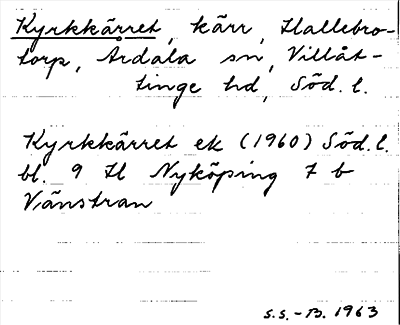 Kyrkkärret, kärr, Hallebro-
torp, Ardala sn, Villåt-
tinge hd, Söd. l.
Kyrkkärret ek (1960) Söd. l.
bl. 9 H Nyköping 7 b
Vänstran
S.S.-B. 1963